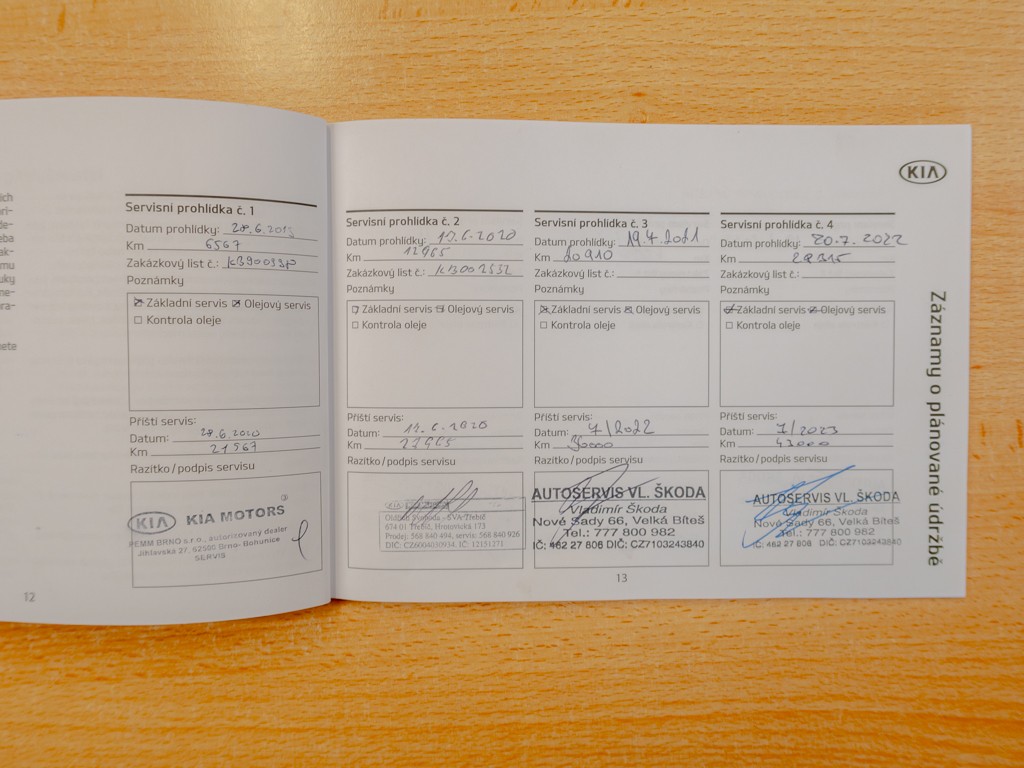 ich
ori-
de-
eba
ak-
mu
uky
me-
ora-
ete
Servisní prohlídka č. 1
Datum prohlídky: 28.6.2019
Km 6567
Zakázkový list č.:
Poznámky
Základní servis Olejový servis
Kontrola oleje
Příští servis:
Datum: 28.6.2020
Km 21567
Razítko/podpis servisu
KIA KIA MOTORS
REMM BRNO s.r.o., autorizovaný dealer
Jihlavská 27, 62500 Brno-Bohunice
SERVIS
12
Servisní prohlídka č. 2
Datum prohlídky:
Km 12965
Zakázkový list č.:
Poznámky
Základní servis Olejový servis
Kontrola oleje
Příští servis:
Datum:
Km 27965
Razítko/podpis servisu
Oldřich Svoboda - SVA Třebíč
674 01 Třebíč, Hrotovická 173
Prodej: 568 840 494, servis: 568 840 926
DIČ: CZ6004030934, IČ: 12151271
Servisní prohlídka č. 3
Datum prohlídky: 19.7.2021
Km 20910
Zakázkový list č.:
Poznámky
Základní servis Olejový servis
Kontrola oleje
Příští servis:
Datum: 7/2022
Km
Razítko/podpis servisu
AUTOSERVIS VL. ŠKODA
Vladimír Škoda
Nové Sady 66, Velká Bíteš
Tel.: 777 800 982
IČ: 462 27 806 DIČ: CZ7103243840
13
Servisní prohlídka č. 4
Datum prohlídky: 20.7.2022
Km 28315
Zakázkový list č.:
Poznámky
Základní servis Olejový servis
Kontrola oleje
Příští servis:
Datum: 7/2023
Km 43000
Razítko/podpis servisu
AUTOSERVIS VL. ŠKODA
Vladimír Škoda
Nové Sady 66, Velká Bíteš
Tel.: 777 800 982
IČ: 462 27 806 DIČ: CZ7103243840
KIA
Záznamy o plánované údržbě